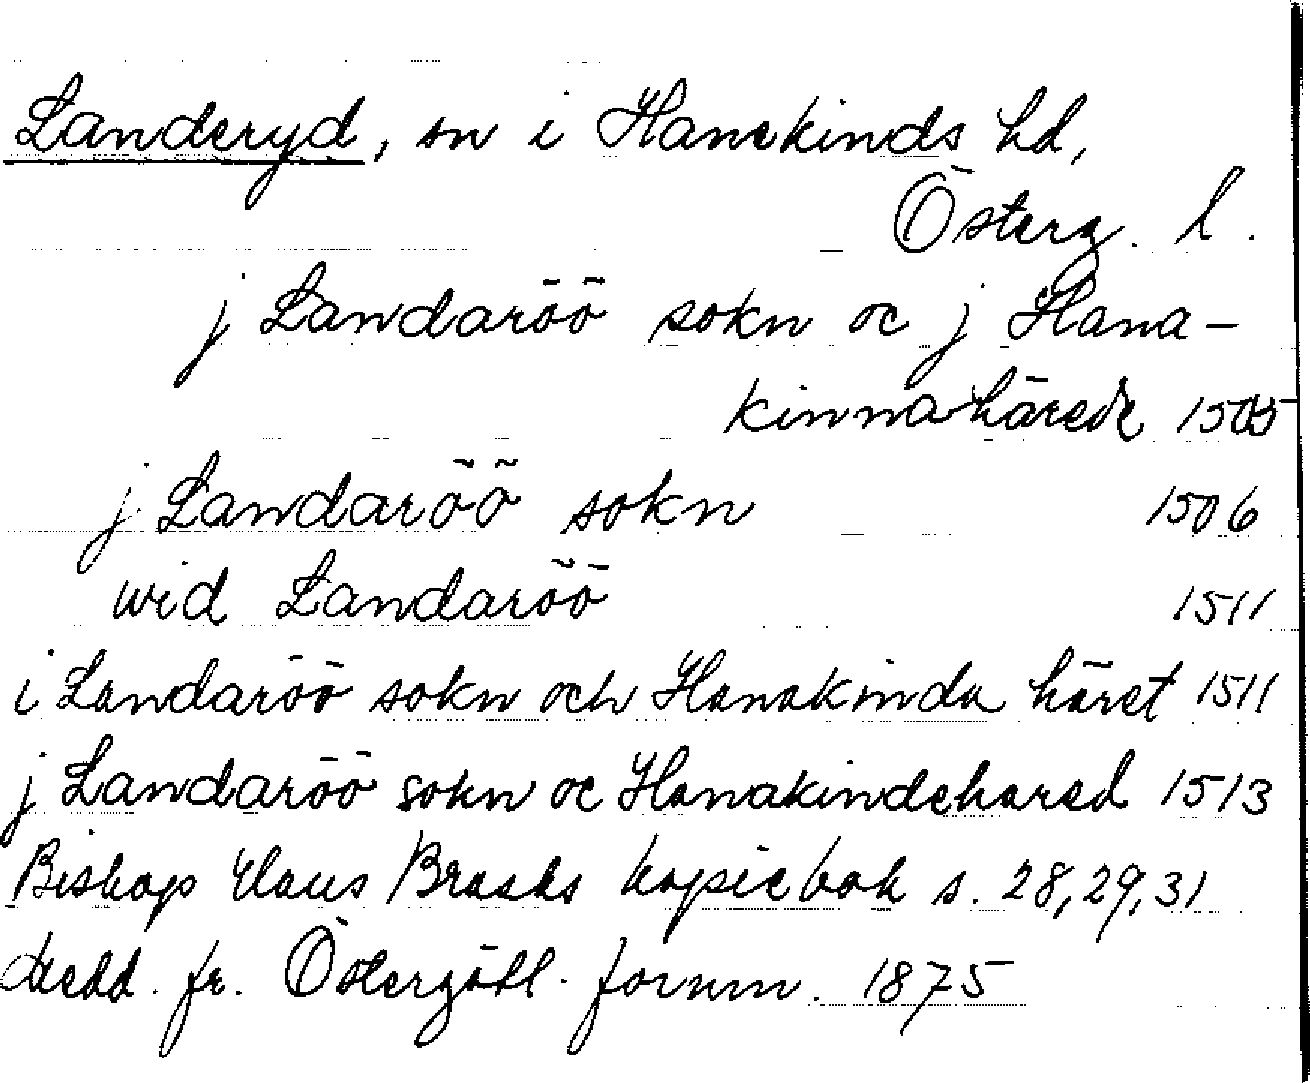 Landeryd, sn i Hanekinds hd,
Österg. l.
j Landaröö sokn oc j Hana-
kinnahärede 1505
j Landaröö sokn 1506
wid Landaröö 1511
i Landaröö sokn och Hanakinda häret 1511
j Landaröö sokn oc Hanakindehared 1513
Biskop Hans Brasks kopiebok s. 28,29,31
Medd. fr. Östergötl. fornm. 1875